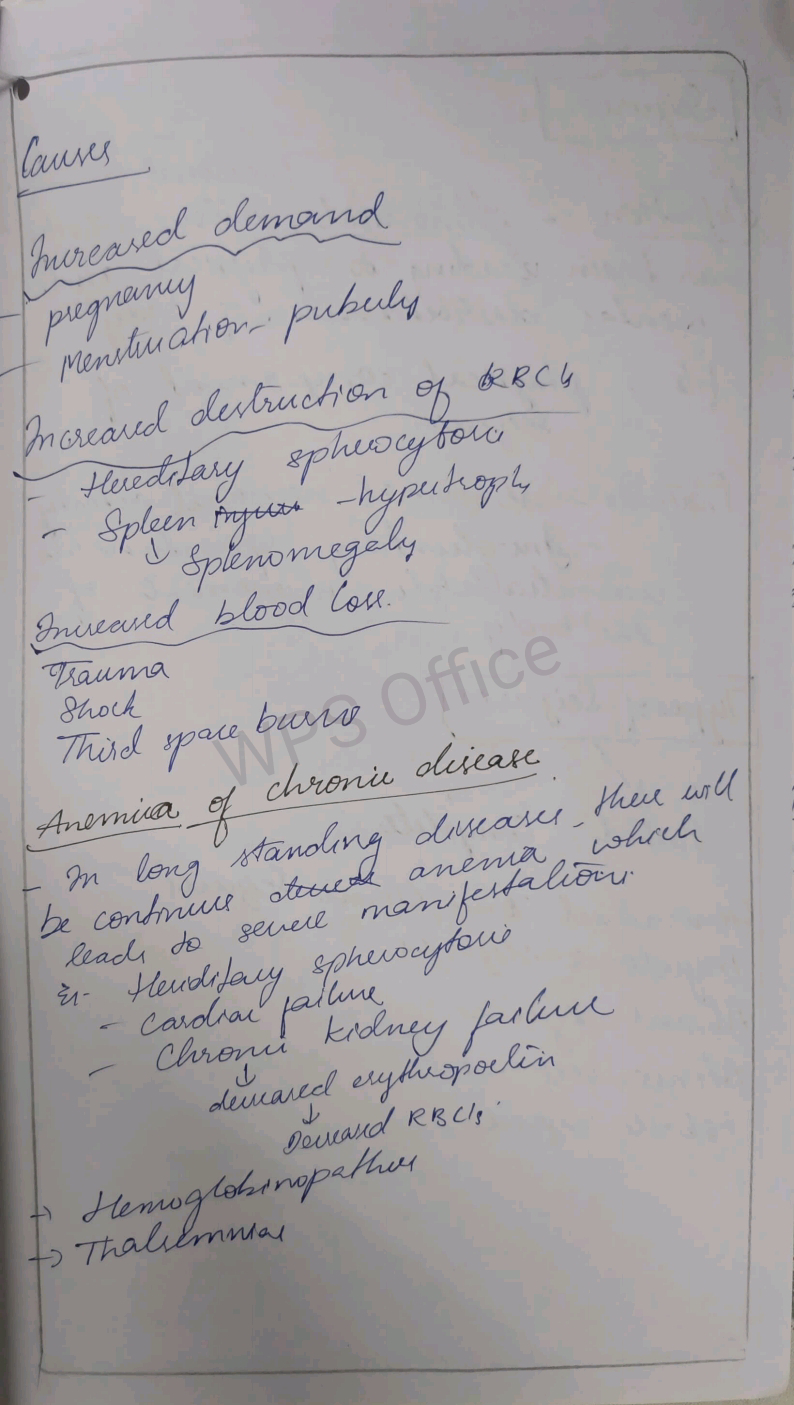 Causes
Increased demand
- pregnancy
- Menstruation - puberty
Increased destruction of RBCs
- Hereditary spherocytosis
- Spleen - hypertrophy
↓ Splenomegaly
Increased blood loss.
Trauma
Shock
Third space burns
WPS Office
Anemia of chronic disease
- In long standing diseases - there will
be continue anemia which
leads to severe manifestations.
Ex:- Hereditary spherocytosis
- Cardiac failure
- Chronic kidney failure
↓
decreased erythropoetin
↓
Decreased RBCs.
→ Hemoglobinopathies
→ Thalsemmias